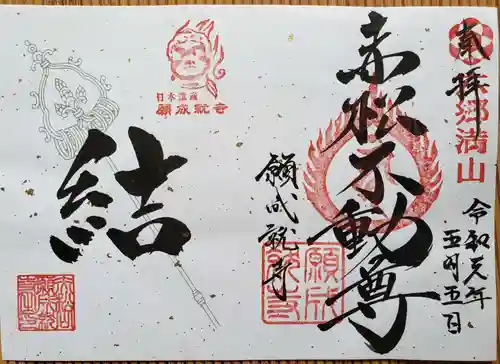 奉拝
茶郷満山
令和元年
五月五日
赤松不動尊
願成就寺
日本遺産
願成就寺
結